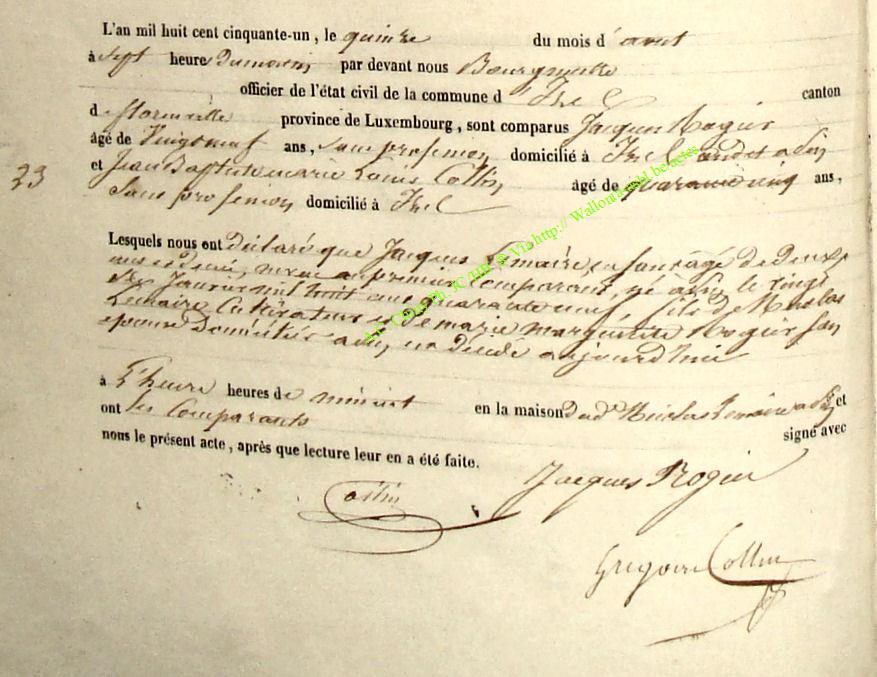 L'an mil huit cent cinquante-un, le quinze du mois d'aout
à sept heure du matin par devant nous Bourgmestre
officier de l'état civil de la commune d'Izel canton
de florenville province de Luxembourg, sont comparus Jacques Rogier
âgé de Vingt neuf ans, sans profession domicilié à Izel
23
et Jean Baptiste marie Louis Collin âgé de quarante cinq ans,
sans profession domicilié à Izel
Lesquels nous ont Déclaré que Jacques Lemaire, enfant agé de deux
ans et demi, neveu au premier Comparant, né le vingt
six Janvier mil huit cent quarante neuf, fils de Nicolas
Lemaire, Cultivateur et de marie marguerite Rogier son
epouse Domiciliés est décédé aujourd'hui
à L'heure heures de minuit en la maison dud. Nicolas Lemaire et
ont les Comparants signé avec
nous le présent acte, après que lecture leur en a été faite.
Jacques Rogier
Grégoire Collin